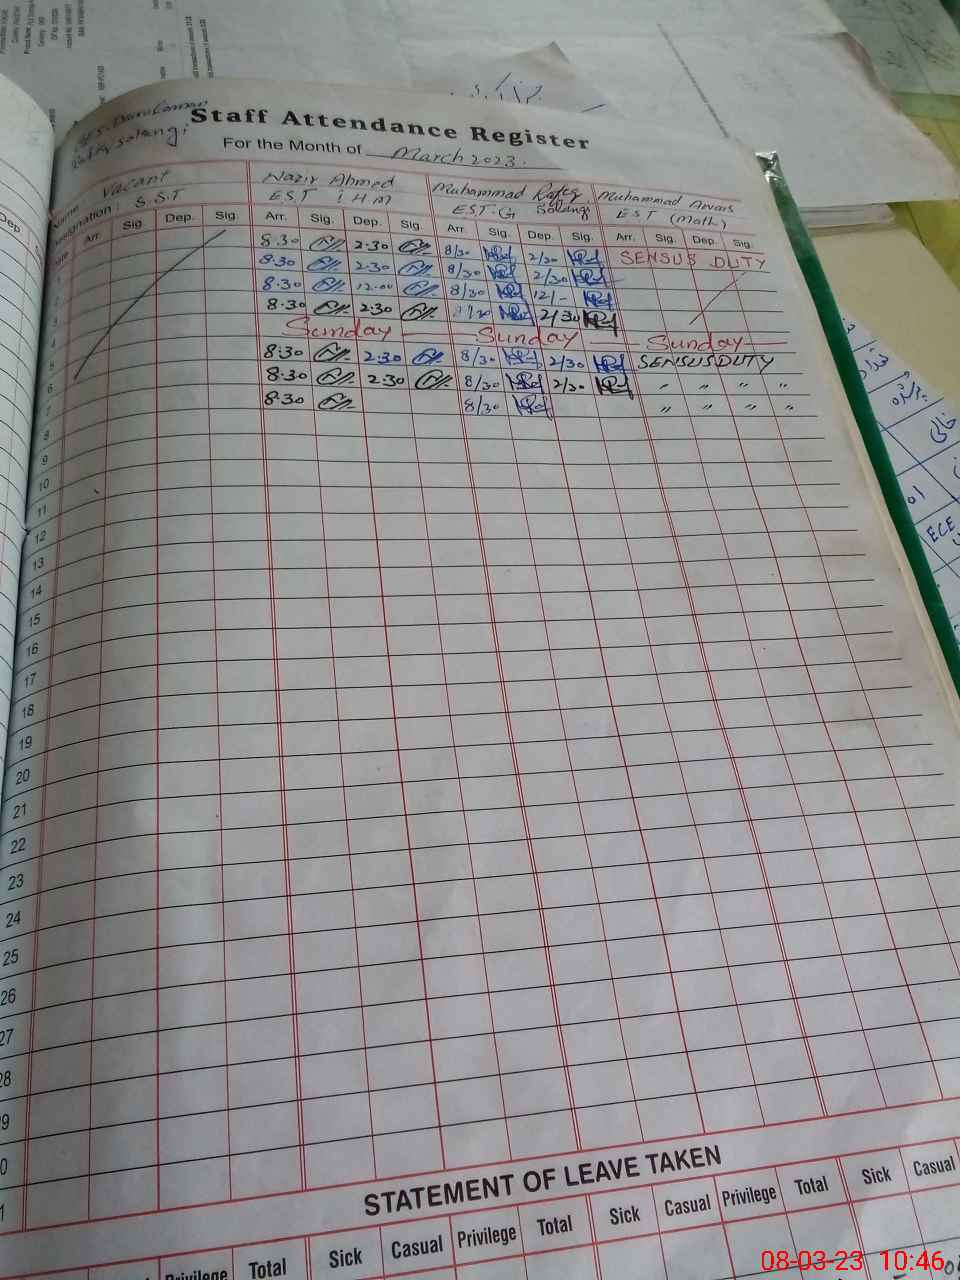 Staff Attendance Register
For the Month of March 2023.
Name Vacant Nazir Ahmed Muhammad Rafeq Solangi Muhammad Awais
Designation : S.S.T EST : H.M EST.G EST (Math)
Date Arr. Sig. Dep. Sig. Arr. Sig. Dep. Sig. Arr. Sig. Dep. Sig. Arr. Sig. Dep. Sig.
1 8.30 2.30 8/30 2/30 SENSUS DUTY
2 8.30 2.30 8/30 2/30
3 8.30 12.00 8/30 12/-
4 8.30 2.30 8/30 2/30
5 Sunday Sunday Sunday
6 8.30 2.30 8/30 2/30 SENSUS DUTY
7 8.30 2.30 8/30 2/30 " " " "
8 8.30 8/30 " " " "
9
10
11
12
13
14
15
16
17
18
19
20
21
22
23
24
25
26
27
28
29
STATEMENT OF LEAVE TAKEN
Privilege Total Sick Casual Privilege Total Sick Casual Privilege Total Sick Casual
خالی
ECE
08-03-23 10:46